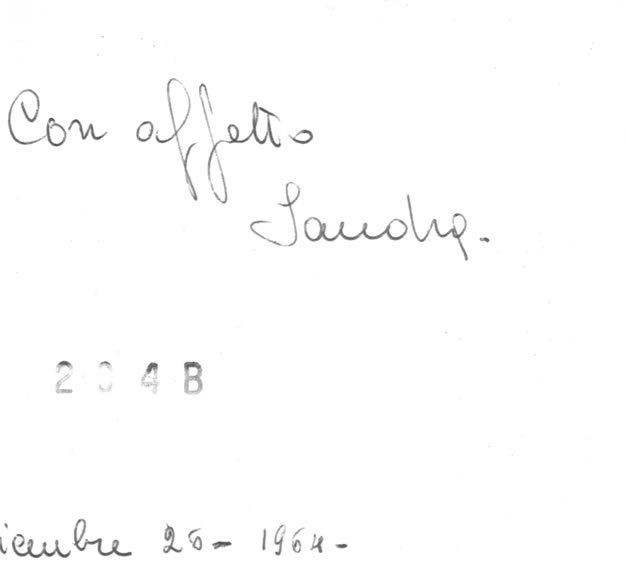 Con affetto
Sandra.
2 3 4 B
iciembre 26 - 1964 -